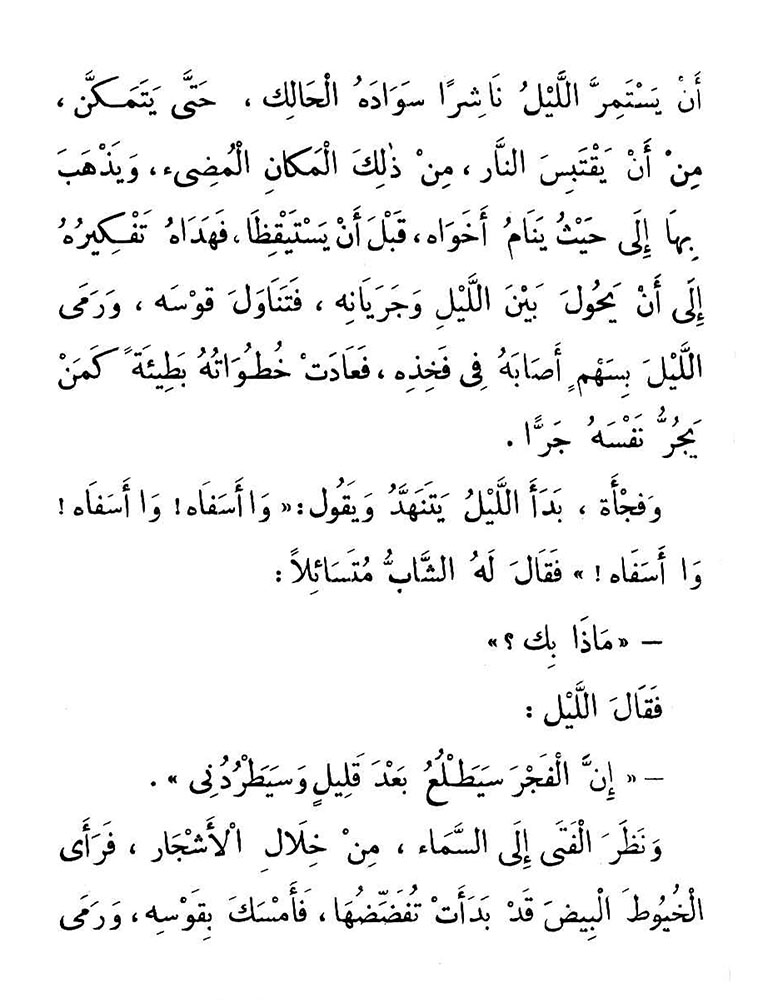 أَنْ يَسْتَمِرَّ اللَّيْلُ نَاشِرًا سَوَادَهُ الْحَالِك ، حَتَّى يَتَمَـكَّن ،
مِنْ أَنْ يَقْتَبِسَ النَّار ، مِنْ ذٰلِكَ الْمَكَانِ الْمُضِىء ، وَيَذْهَبَ
بِهَا إِلَى حَيْثُ يَنَامُ أَخَوَاه ، قَبْلَ أَنْ يَسْتَيْقِظَا ، فَهَدَاهُ تَفْـكِيرُهُ
إِلَى أَنْ يَحُولَ بَيْنَ اللَّيْلِ وَجَرَيَانِه ، فَتَنَاوَلَ قَوْسَه ، وَرَمَى
اللَّيْلَ بِسَهْمٍ أَصَابَهُ فِى فَخِذِه ، فَعَادَتْ خُطُوَاتُهُ بَطِيئَةً كَمَنْ
يَجُرُّ نَفْسَهُ جَرًّا .
وَفَجْأَة ، بَدَأَ اللَّيْلُ يَتَنَهَّدُ وَيَقُول : « وَا أَسَفَاه ! وَا أَسَفَاه !
وَا أَسَفَاه ! » فَقَالَ لَهُ الشَّابُّ مُتَسَائِلاً :
— « مَاذَا بِك ؟ »
فَقَالَ اللَّيْل :
— « إِنَّ الْفَجْرَ سَيَطْلُعُ بَعْدَ قَلِيلٍ وَسَيَطْرُدُنِى » .
وَنَظَرَ الْفَتَى إِلَى السَّمَاء ، مِنْ خِلَالِ الْأَشْجَار ، فَرَأَى
الْخُيُوطَ الْبِيضَ قَدْ بَدَأَتْ تُفَضِّضُهَا ، فَأَمْسَكَ بِقَوْسِه ، وَرَمَى